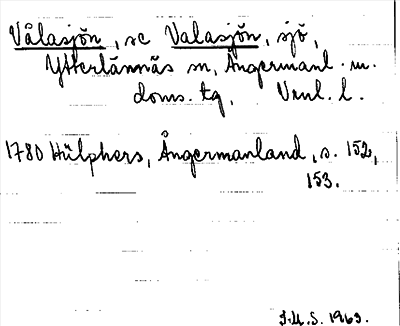 Vålasjön, sc Valasjön, sjö,
Ytterlännäs sn, Ångermanl. m.
doms. tg, Vnnl. l.
1780 Hülphers, Ångermanland, s. 152,
153.
J.M.S. 1963.